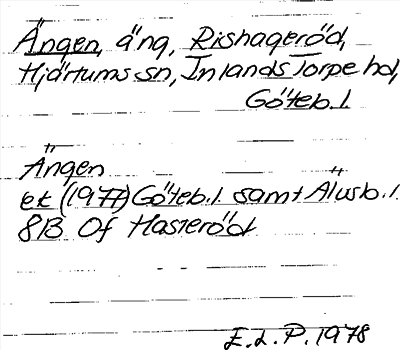 Ängen, äng, Rishageröd,
Hjärtums sn, Inlands Torpe hd,
Göteb. l.
Ängen
ek (1977) Göteb. l. samt Älvsb. l.
8B Of Hasteröd
E. L. P. 1978